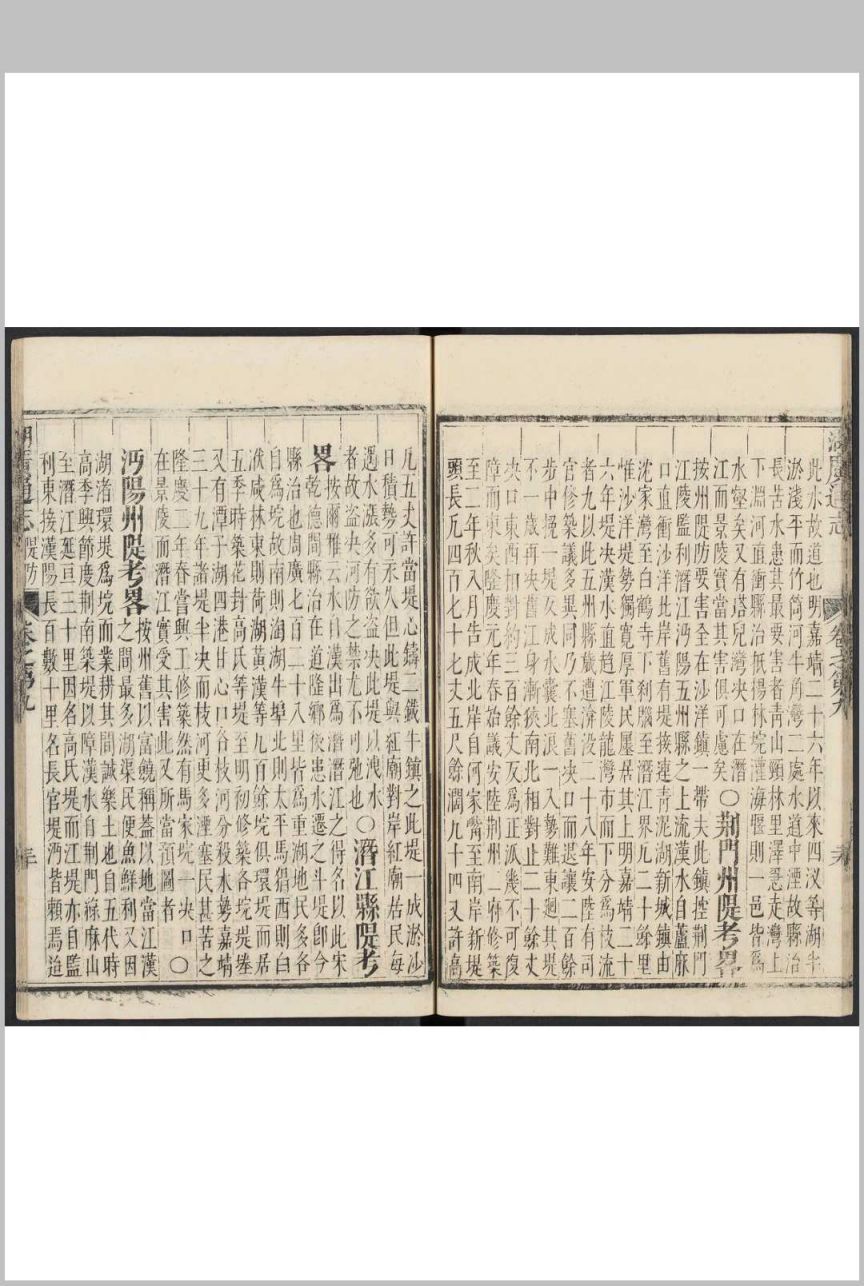 湖廣通志 卷之第九
此水故道也明嘉靖二十六年以來四汊等湖半
淤淺平而竹筒河牛角灣二處水道中湮故縣治
長苦水患其最要害者青山頸林里澤悉走灣上
下淵河直衝縣治柢楊林垸灌海堰則一邑皆爲
水壑矣又有塔兒灣決口在潛
江而景陵實當其害俱可慮矣〇荆門州隄考畧
按州隄防要害全在沙洋鎮一帶夫此鎮控荆門
江陵監利潛江沔陽五州縣之上流漢水自蘆麻
口直衝沙洋北岸舊有堤接連青泥湖新城鎮由
沈家灣至白鶴寺下利腦至潛江界凡二十餘里
惟沙洋堤勢獨寬厚軍民屢居其上明嘉靖二十
六年堤決漢水直趋江陵龍灣市而下分爲枝流
者九以此五州縣歲遭渰没二十八年安陸有司
官修築議多異同乃不塞舊決口而退讓二百餘
步中挽一堤反成水囊此浪一入勢難東廻其堤
不一歲再決舊江身漸狹南北相對止二十餘丈
決口東西相對約三百餘丈反爲正派幾不可復
障而東矣隆慶元年春始議安陸荆州二府修築
至二年秋八月告成北岸自何家嘴至南岸新堤
頭長凡四百七十七丈五尺餘濶九十四又許高
凡五丈許當堤心鑄二鐵牛鎮之此堤一成淤沙
日積勢可永久但此堤與紅廟對岸紅廟居民每
遇水漲多有欲盗決此堤以洩水
者故盗決河防之禁尤不可弛也〇潛江縣隄考
畧按爾雅云水自漢出爲潛潛江之得名以此宋
乾德間縣治在道隆鄉後患水遷之斗堤卽今
縣治也周廣七百二十八里皆爲重湖地民多各
自爲垸故南則淘湖牛埠北則太平馬猖西則白
洑咸林東則荷湖黃漢等九百餘垸俱環堤而居
五季時築花封高氏等堤至明初修築各垸堤塍
又有潭子湖四港甘心口各枝河分殺水勢嘉靖
三十九年諸堤半決而枝河更多湮塞民甚苦之
隆慶二年春嘗興工修築然有馬家垸一決口
在景陵而潛江實受其害此又所當預圖者〇
沔陽州隄考畧按州舊以富饒稱葢以地當江漢
之間最多湖渠民便魚鮮利又因
湖渚環堤爲垸而業耕其間誠樂土也自五代時
高季興節慶荆南築堤以障漢水自荆門祿麻山
至潛江延亘三十里因名高氏堤而江堤亦自監
利東接漢陽長百數十里名長官堤沔皆頼焉迨
湖廣通志 隄防 卷之第九